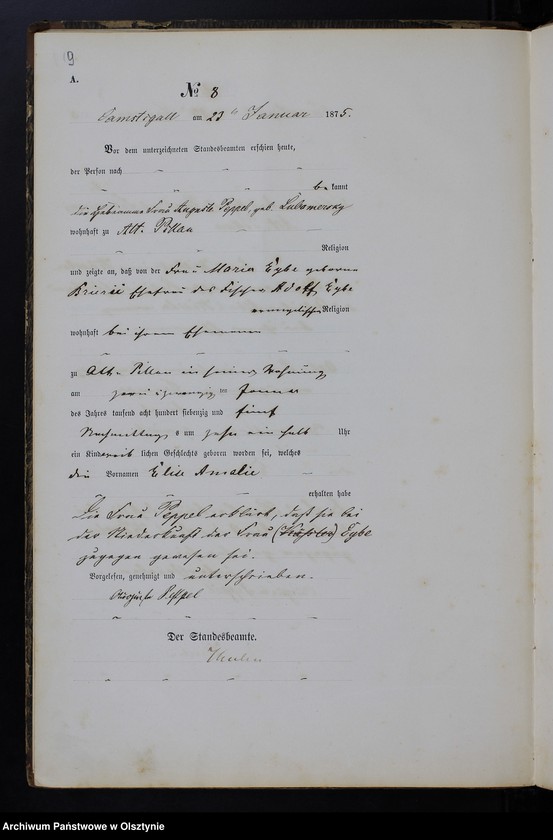 9
A.
№ 8
Camstigall am 23 ten Januar 1875.
Vor dem unterzeichneten Standesbeamten erschien heute,
der Person nach
bekannt
die Hebamme Frau Auguste Peppel, geb. Lubomerszy
wohnhaft zu Alt-Pillau
Religion
und zeigte an, daß von der Frau Maria Eybe geborne
Ehefrau des Fischer Adolf Eybe
evangelischer Religion
wohnhaft bei ihrem Ehemann
zu Alt-Pillau in seiner Wohnung
am zwei u zwanzig ten Januar
des Jahres tausend acht hundert siebenzig und fünf
Nachmittags um zehn ein halb Uhr
ein Kind weiblichen Geschlechts geboren worden sei, welches
die Vornamen Elise Amalie
erhalten habe
Die Frau Peppel erklärt, daß sie bei
der Niederkunft der Frau Eybe
zugegen gewesen sei.
Vorgelesen, genehmigt und unterschrieben.
Auguste Peppel
Der Standesbeamte.
Archiwum Państwowe w Olsztynie